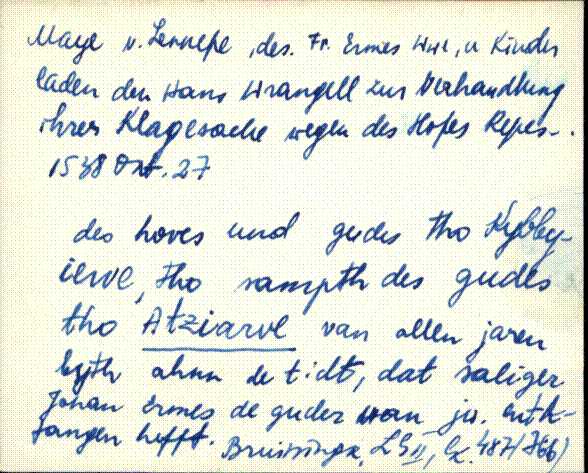 Maye v. Lennepe, des. Fr. Ermes Wwe, u Kinder
laden den Hans Wrangell zur Verhandlung
ihrer Klagesache wegen des Hofes Repes-.
1538 Okt. 27
des hoves und gudes tho Kybby-
ierve, tho sampth des gudes
tho Atziarve van allen jaren
byth ahnn de tidt, dat saliger
Johan Ermes de guder van jw. enth-
fangen hefft. Bruiningk, LG II, 487 (766)